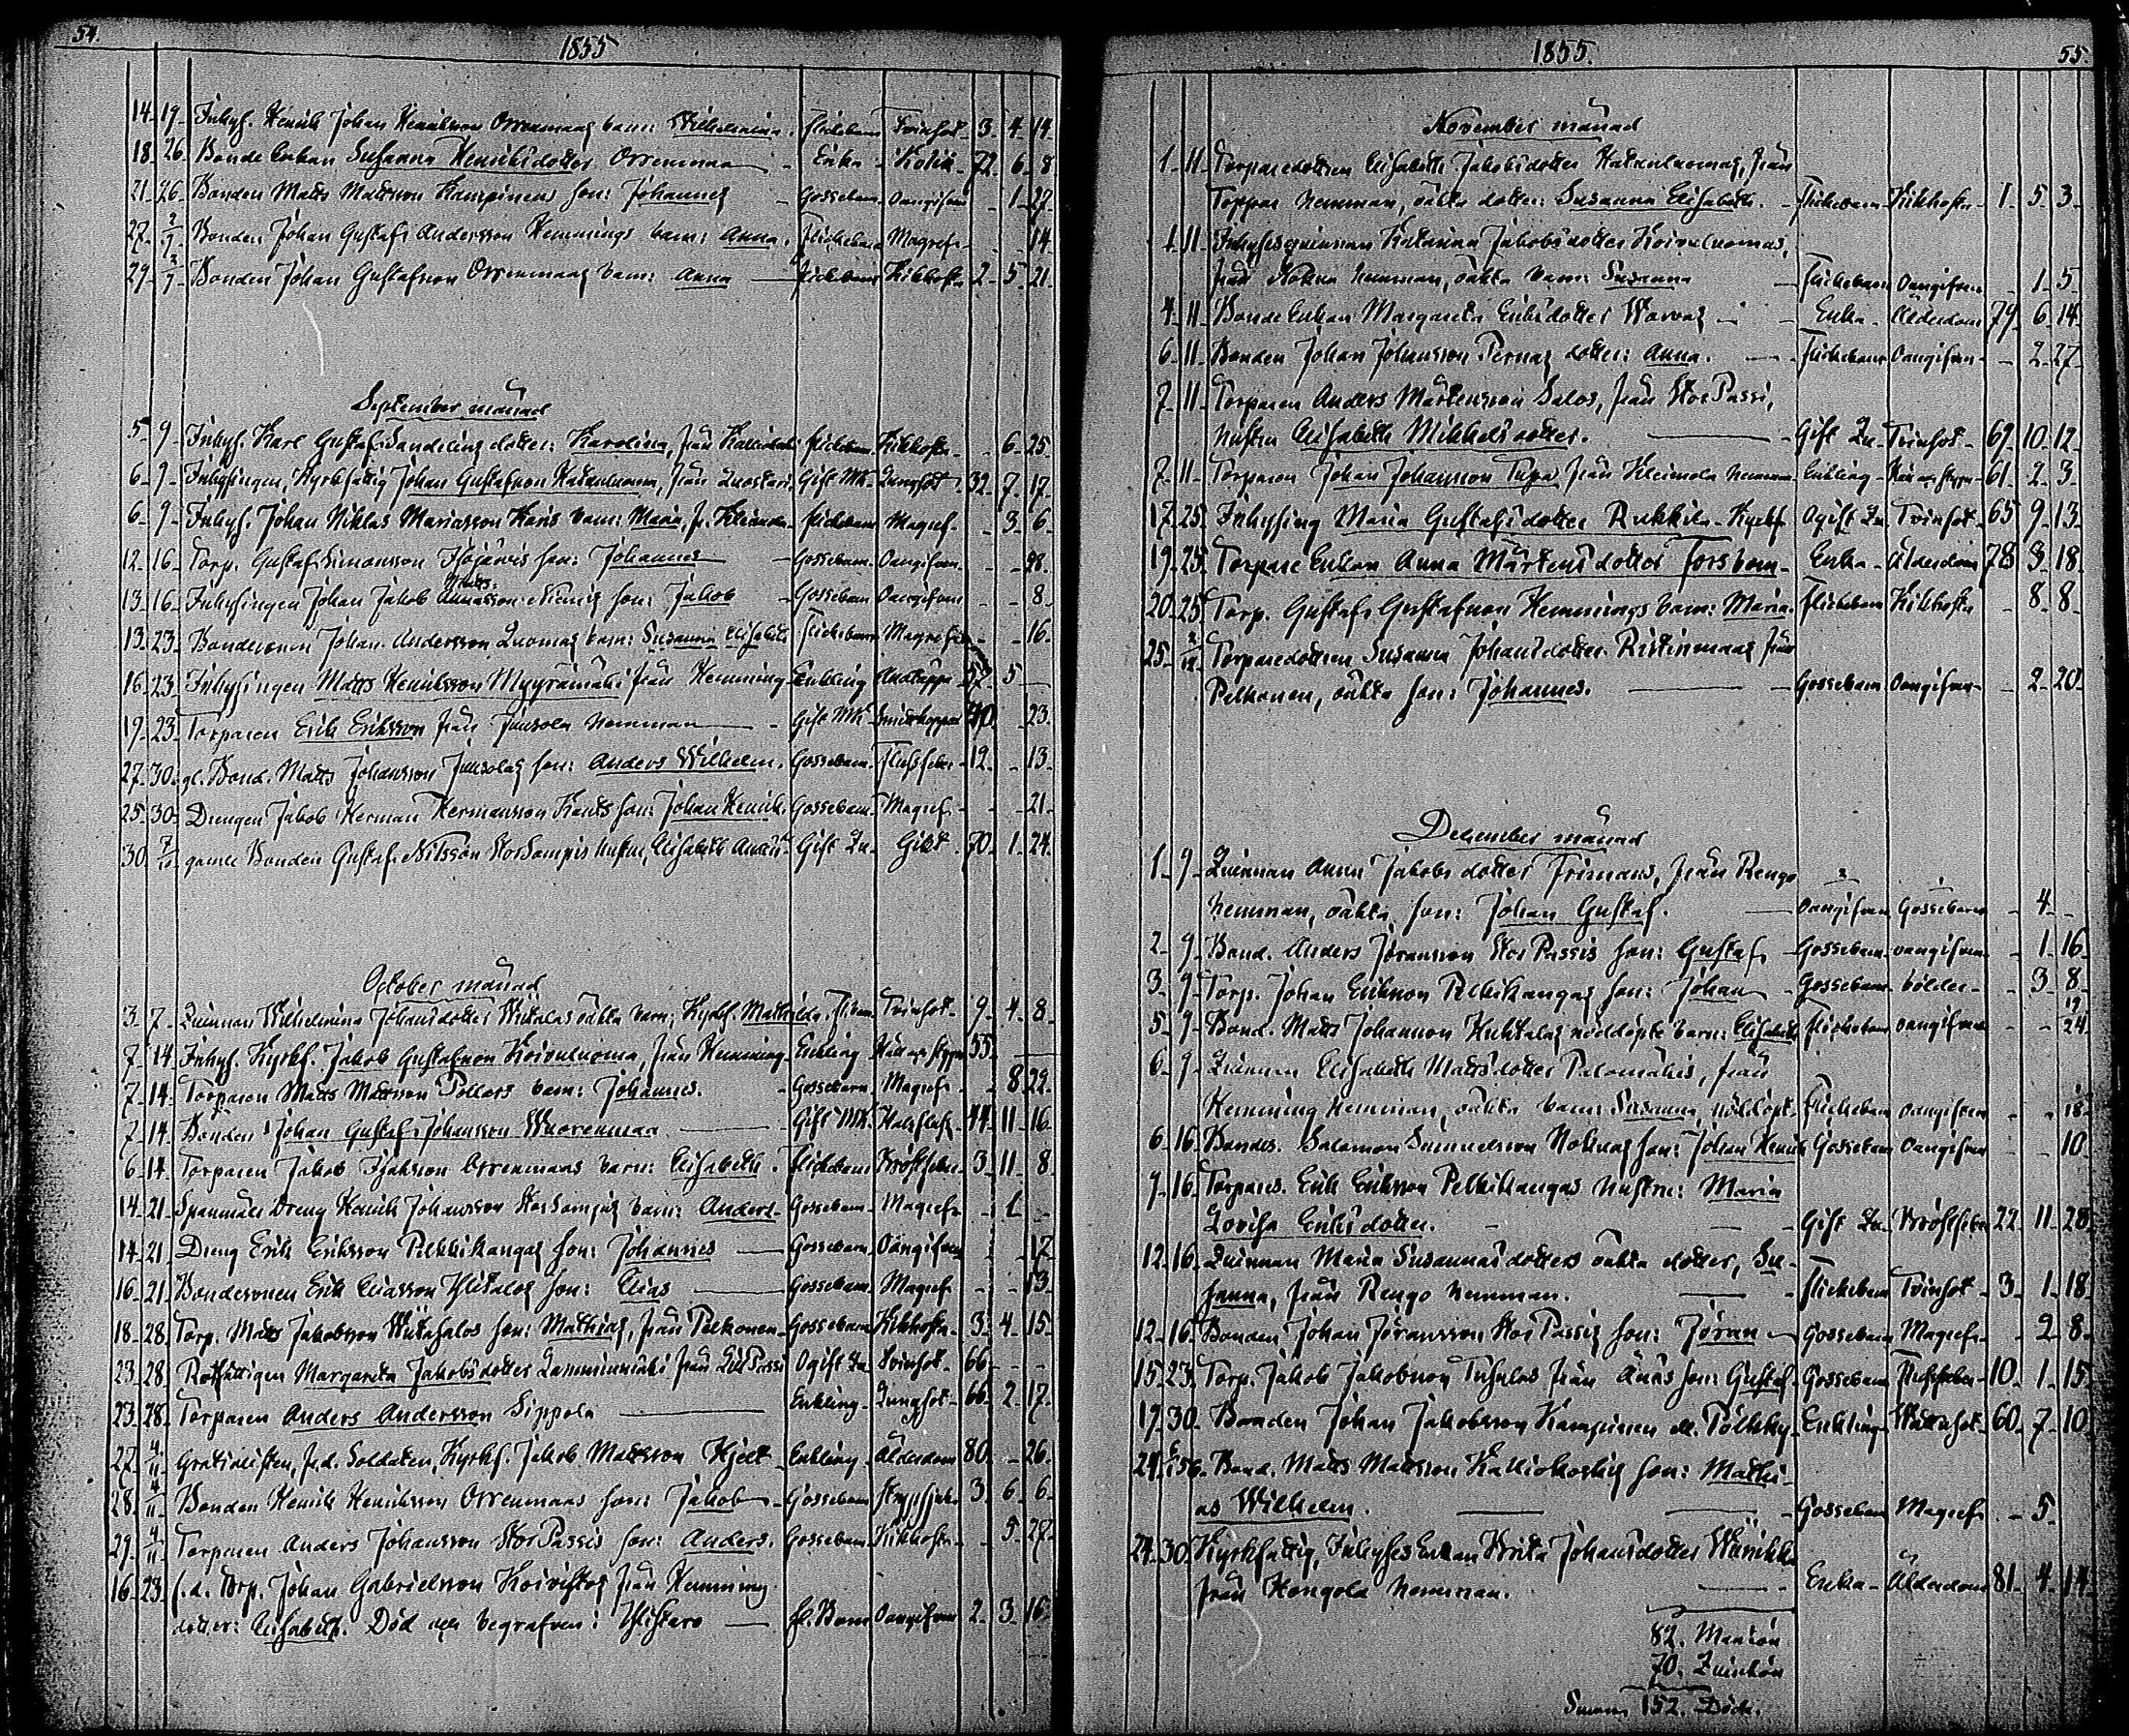 54.
1855
14. 19. Inhys. Henrik Johan Henriksson Orrenmaas barn: Wilhelmina. flickebarn Tvinsot. 3. 4. 14.
18. 26. Bonde Enkan Susanna Henriksdotter Orrenmaa - Enka - Kolik - 72. 6. 8.
21. 26. Bonden Matts Mattsson Kampinens son: Johannes - Gossebarn Oangifven - 1. 27.
27. 2/9. Bonden Johan Gustaf Andersson Hemmings barn: Anna. flickebarn Magref. - - 14.
29. 2/9. Bonden Johan Gustafsson Orrenmaas barn: Anna - flickebarn Kikhosta 2. 5. 21.
September månad
5. 9. Inhys. Karl Gustaf Sandelins dotter: Karolina, från flickebarn Kikhosta - 6. 25.
6. 9. Inhysingen, Kyrkfattig Johan Gustafsson från Gift Mk. Lungsot. 32. 7. 17.
6. 9. Inhys. Johan Niklas Mariasson barn: Maria, fr. flickebarn Magref. - 3. 6.
12. 16. Torp. Gustaf Simonsson Isojärvis son: Johannes - Gossebarn Oangifven - - 28.
13. 16. Inhysingen Johan Jakob Niemis son: Jakob - Gossebarn Oangifven - - 8.
13. 23. Bondesonen Johan Andersson Luomas barn: Susanna Elisabeth flickebarn Magref - - 16.
16. 23. Inhysingen Matts Henriksson Myyrämäki från Hemming - Enkling 52. 5 -
19. 23. Torparen Erik Eriksson från Junsola hemman - Gift Mk. Smittkoppor 40. - 23.
27. 30. gl. Bond. Matts Johansson Junsolas son: Anders Wilhelm. Gossebarn 12. - 13.
25. 30. Drengen Jakob Herman Hermansson son: Johan Henrik. Gossebarn Magref - - 21.
30. 7/10. gamle Bonden Gustaf Nilsson StorSompis hustru, Elisabeth - Gift Qu. Gikt. 70. 1. 24.
October månad
3. 7. Quinnan Wilhelmina Johansdotter oäkta barn, Kyrkf. Mathilda. Tvinsot. 9. 4. 8.
7. 14. Inhys. Kyrkf. Jakob Gustafsson Koivuluoma, från Hemming - Enkling 55. -
7. 14. Torparen Matts Mattsson Pollars barn: Johannes. - Gossebarn Magref - - 8. 22.
7. 14. Bonden Johan Gustaf Johansson Wuorenmaa - Gift Mk. 44. 11. 16.
6. 14. Torparen Jakob Isaksson Orrenmaas barn: Elisabeth. flickebarn 3. 11. 8.
14. 21. Spanmåls Dreng Henrik Johansson StorSompis barn: Anders - Gossebarn Magref - 1. -
14. 21. Dreng Erik Eriksson Pelkkikangas son: Johannes - Gossebarn Oangifven - - 17.
16. 21. Bondesonen Erik Eliasson Ylitalos son: Elias - Gossebarn Magref. - - 13.
18. 28. Torp. Matts Jakobsson son: Mathias, från Pelkonen - Gossebarn Kikhosta 3. 4. 15.
23. 28. Margareta Jakobsdotter Lamminmäki från LillPassi Ogift Qu. Tvinsot. 66. - -
23. 28. Torparen Anders Andersson Sippola - Enkling - Lungsot. 66. 2. 17.
27. 4/11. Gratialisten, f.d. Soldaten, Kyrkf. Jakob Mattsson Hjelt - Enkling - Ålderdom 80. - 26.
28. 4/11. Bonden Henrik Henriksson Orrenmaas son: Jakob - Gossebarn 3. 6. 6.
29. 4/11. Torparen Anders Johansson StorPassis son: Anders. Gossebarn Kikhosta - 5. 27.
16. 23. f.d. Torp. Johan Gabrielsson Koivistos från Hemming
dotter: Elisabeth. Död och begrafven i Ylistaro - fl. Barn Oangifven 2. 3. 16.
1855.
55.
November månad
1. 11. Torparedottren Elisabeth Jakobsdotter från
hemman, oäkta dotter: Susanna Elisabeth. - Flickebarn Kikhosta - 1. 5. 3.
1. 11. Inhysesquinnan Katarina Jakobsdotter Koivuluomas,
från hemman, oäkta barn: Susanna - Flickebarn Oangifven - 1. 5.
4. 11. Bonde Enkan Margareta Eriksdotter - Enka - Ålderdom 79. 6. 14.
6. 11. Bonden Johan Johansson Pernas dotter: Anna. - Flickebarn Oangifven - 2. 27.
7. 11. Torparen Anders Mårtensson Salos, från StorPassi,
hustru Elisabeth Mikkelsdotter. - Gift Qu. Tvinsot - 69. 10. 12.
7. 11. Torparen Johan Johansson Tupa från hemman - Enkling - 61. 2. 3.
17. 25. Inhysing Maria Gustafsdotter Rukkila - Kyrkf. Ogift Qu. Tvinsot - 65 9. 13.
19. 25. Torpare Enkan Anna Mårtensdotter Forsbom - Enka - Ålderdom 78 3. 18.
20. 25. Torp. Gustaf Gustafsson Hemmings barn: Maria. Flickebarn Kikhosta - 8. 8.
25. 2/12. Torparedottren Susanna Johansdotter Ristinmaas från
Pelkonen, oäkta son: Johannes. - Gossebarn Oangifven - 2. 20.
December månad
1. 9. Quinnan Anna Jakobsdotter Frimans, från Rengo
hemman, oäkta son: Johan Gustaf. - Oangifven Gossebarn - 4. -
2. 9. Bond. Anders Jöransson StorPassis son: Gustaf - Gossebarn oangifven - 1. 16.
3. 9. Torp. Johan Eriksson Pelkkikangas son: Johan - Gossebarn bölder - 3. 8.
5. 9. Bond. Matts Johansson Huhtalas nöddöpte barn: Elisabeth flickebarn oangifven - - 24.
6. 9. Quinnan Elisabeth Mattsdotter Palomäkis, från
Hemming hemman, oäkta barn: Susanna, nöddöpt. Flickebarn oangifven - - 18.
6. 16. Bondes. Salomon Samuelsson son: Johan Henrik Gossebarn Oangifven - - 10.
7. 16. Torpares. Erik Eriksson Pelkkikangas hustru: Maria
Lovisa Eriksdotter. - Gift Qu. 22. 11. 28.
12. 16. Quinnan Maria Susannasdotters oäkta dotter, Su-
sanna, från Rengo hemman. - flickebarn Tvinsot - 3. 1. 18.
12. 16. Bonden Johan Jöransson StorPassis son: Jöran - Gossebarn Magref. - 2. 8.
15. 23. Torp. Jakob Jakobsson från son: Gustaf. Gossebarn 10. 1. 15.
17. 30. Bonden Johan Jakobsson Kampinen ell. Pölkky - Enkling - 60. 7. 10.
24. Bond. Matts Mattsson Kalliokoskis son: Mathi-
as Wilhelm. - Gossebarn Magref. - 5.
24. 30. Kyrkfattig, Inhyses Enkan Brita Johansdotter
från Kongola hemman. - Enka - Ålderdom 81. 4. 14.
82. Mankön
70. Quinkön
Summa 152. Döde.